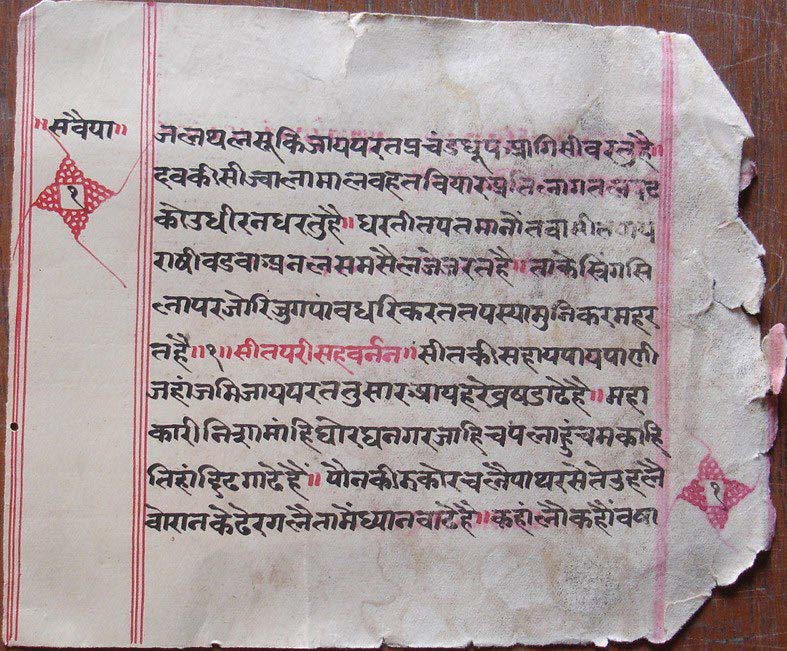 ॥सवैया॥
जलथलसूकिजायपरतप्रचंडधूपआगिसीवरतुहै॥
दवकीसीज्वालामालवहतवियारअतिलागतलपट
कोउधीरनधरतुहै॥धरतीतपतमानौंतवासी
राषीवडवाअनलसमसैलजेजरतहै॥ताकेस्त्रिंगसि
लापरजोरिजुगपांवधरिकरततपस्यामुनिकरमहर
तहै॥१॥सीतपरीसहवर्नन॥सीतकीसहायपायपाणी
जहांजमिजायपरततुसारआयहरेव्रषडाढेहै॥महा
कारीनिशामांहिघोरघनगरजाहिचपलाहुंचमकाहि
तिहांद्रिगगाढेहैं॥पौनकीऊकोरचलैपाथरसेतेउहलै
वोरानकेढेरगलैतामेंध्यानवाढेहैं॥कहांलौकहौंवषा
१
१